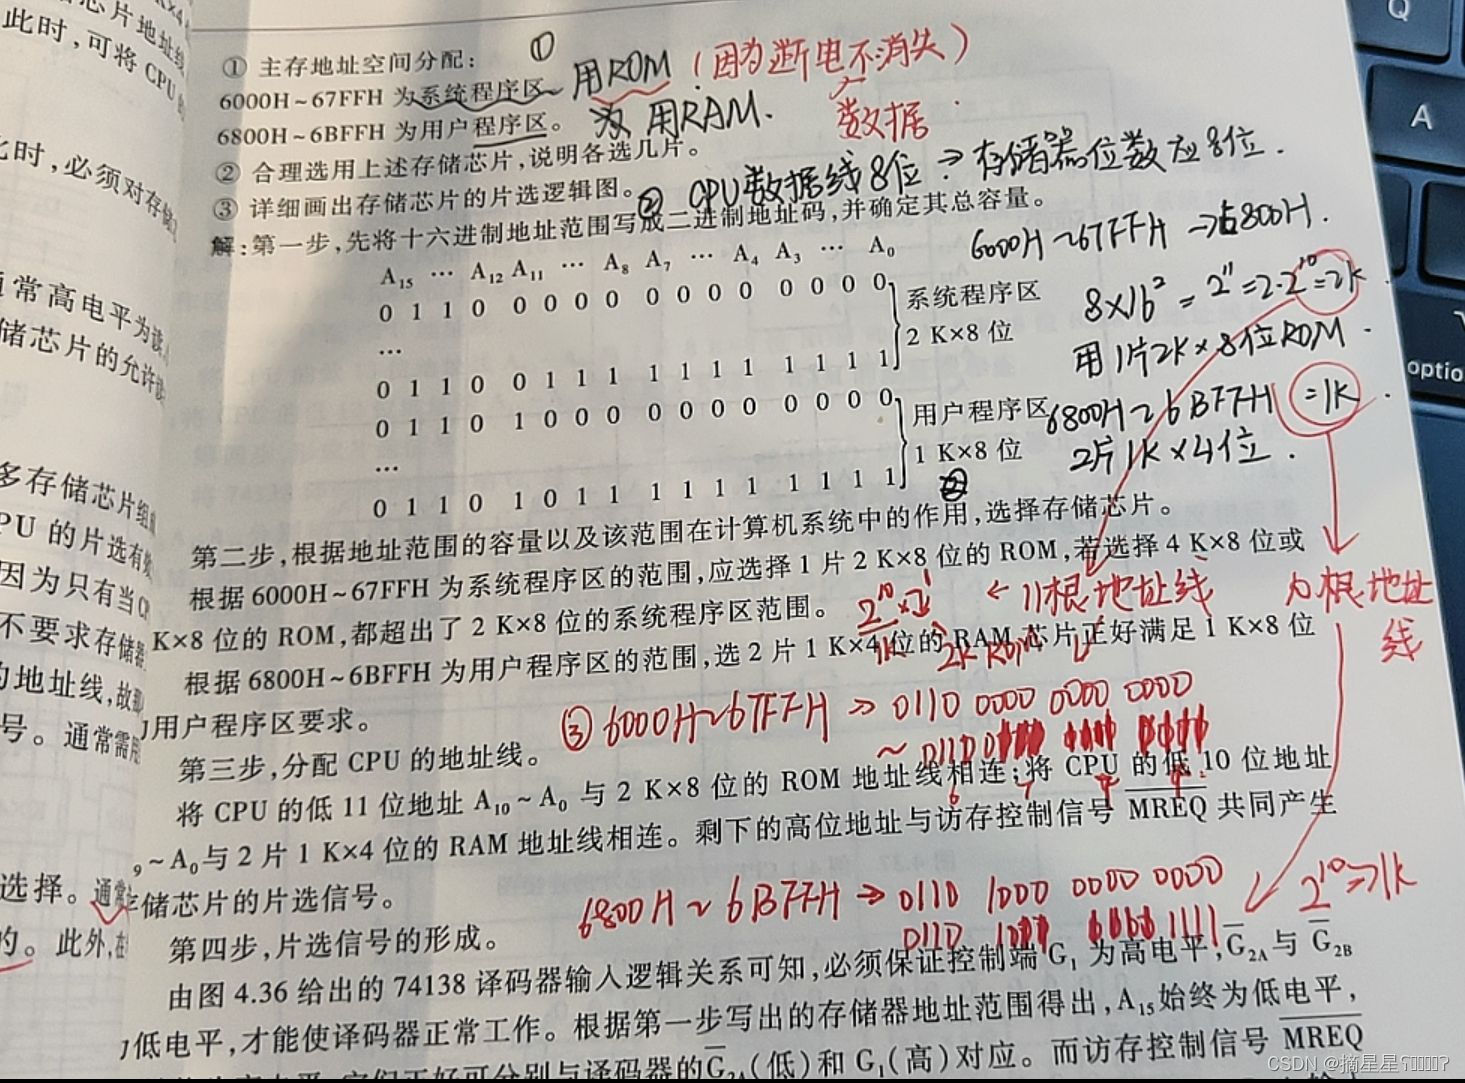 K×4
芯片地址线
此时,可将 CPU
此时,必须对存储
通常高电平为读
储芯片的允许
多存储芯片组成
CPU 的片选有效
因为只有当
不要求存储器
的地址线,故
号。通常需用
选择。通常
的。此外,在
① 主存地址空间分配:
①
6000H~67FFH 为系统程序区。
用ROM(因为断电不消失)
数据
6800H~6BFFH 为用户程序区。
用RAM.
② 合理选用上述存储芯片,说明各选几片。
③ 详细画出存储芯片的片选逻辑图。
② CPU数据线8位 ⇒ 存储器位数应8位.
解:第一步,先将十六进制地址范围写成二进制地址码,并确定其总容量。
A15 … A12 A11 … A8 A7 … A4 A3 … A0
0 1 1 0 0 0 0 0 0 0 0 0 0 0 0 0
…
0 1 1 0 0 1 1 1 1 1 1 1 1 1 1 1
系统程序区
2 K×8 位
0 1 1 0 1 0 0 0 0 0 0 0 0 0 0 0
…
0 1 1 0 1 0 1 1 1 1 1 1 1 1 1 1
用户程序区
1 K×8 位
6000H~67FFH → 占800H.
8×16² = 2¹¹ = 2·2¹⁰ = 2K
用1片2K×8位ROM.
6800H~6BFFH =1K.
2片1K×4位.
②
第二步,根据地址范围的容量以及该范围在计算机系统中的作用,选择存储芯片。
根据 6000H~67FFH 为系统程序区的范围,应选择 1 片 2 K×8 位的 ROM,若选择 4 K×8 位或
K×8 位的 ROM,都超出了 2 K×8 位的系统程序区范围。
2¹⁰×2¹ ← 11根地址线
1K
2K ROM
10根地址
线
根据 6800H~6BFFH 为用户程序区的范围,选 2 片 1 K×4 位的 RAM 芯片正好满足 1 K×8 位
用户程序区要求。
③ 6000H~67FFH ⇒ 0110 0000 0000 0000
~ 01100111 1111 1111
6 7 F F
第三步,分配 CPU 的地址线。
将 CPU 的低 11 位地址 A10~A0 与 2 K×8 位的 ROM 地址线相连;将 CPU 的低 10 位地址
9~A0与 2 片 1 K×4 位的 RAM 地址线相连。剩下的高位地址与访存控制信号 M̅R̅E̅Q̅ 共同产生
存储芯片的片选信号。
6800H~6BFFH ⇒ 0110 1000 0000 0000
2¹⁰⇒1K
第四步,片选信号的形成。
由图 4.36 给出的 74138 译码器输入逻辑关系可知,必须保证控制端 G1 为高电平,G̅2A与 G̅2B
为低电平,才能使译码器正常工作。根据第一步写出的存储器地址范围得出,A15始终为低电平,
它们正好可分别与译码器的G̅2A(低)和 G1(高)对应。而访存控制信号 M̅R̅E̅Q̅
Q
A
optio
CSDN @摘星星